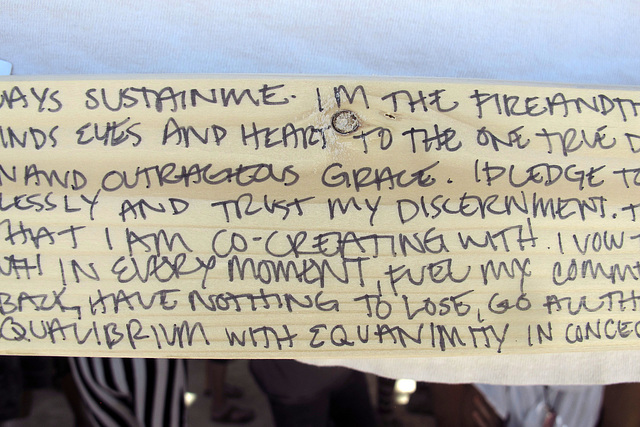 AYS SUSTAIN ME. I'M THE FIRE AND TH
INDS EYES AND HEART TO THE ONE TRUE D
N AND OUTRAGEOUS GRACE. I PLEDGE TO
LESSLY AND TRUST MY DISCERNMENT. T
THAT I AM CO-CREATING WITH. I VOW
IN EVERY MOMENT, FUEL MY COMM
BACK, HAVE NOTHING TO LOSE, GO ALL TH
QUALIBRIUM WITH EQUANIMITY IN CONCE